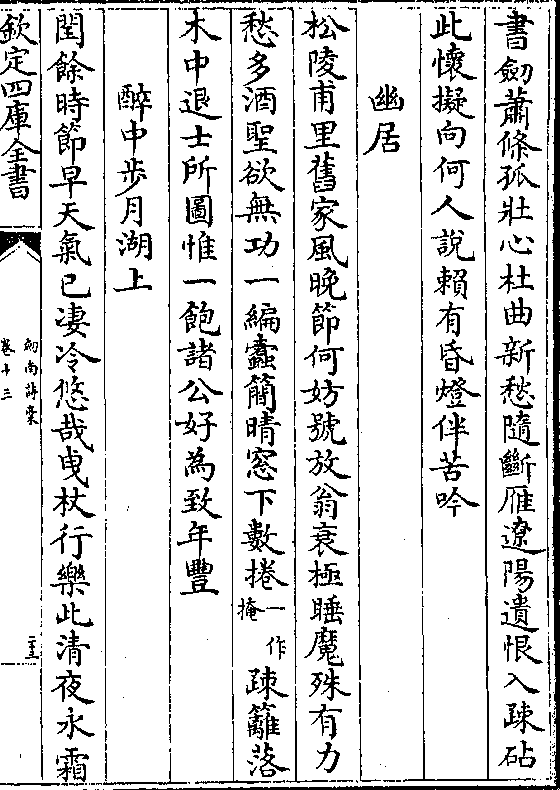 書劒蕭條孤壯心杜曲新愁隨斷雁遼陽遺恨入疎砧
此懷擬向何人說賴有昏燈伴苦吟
幽居
松陵甫里舊家風晩節何妨號放翁衰極睡魔殊有力
愁多酒聖欲無功一編蠹簡晴窓下數捲一作掩疎籬落
木中退士所圖惟一飽諸公好為致年豐
醉中步月湖上
閏餘時節早天氣已凄冷悠哉曳杖行樂此清夜永霜
欽定四庫全書
劒南詩稾
卷十三